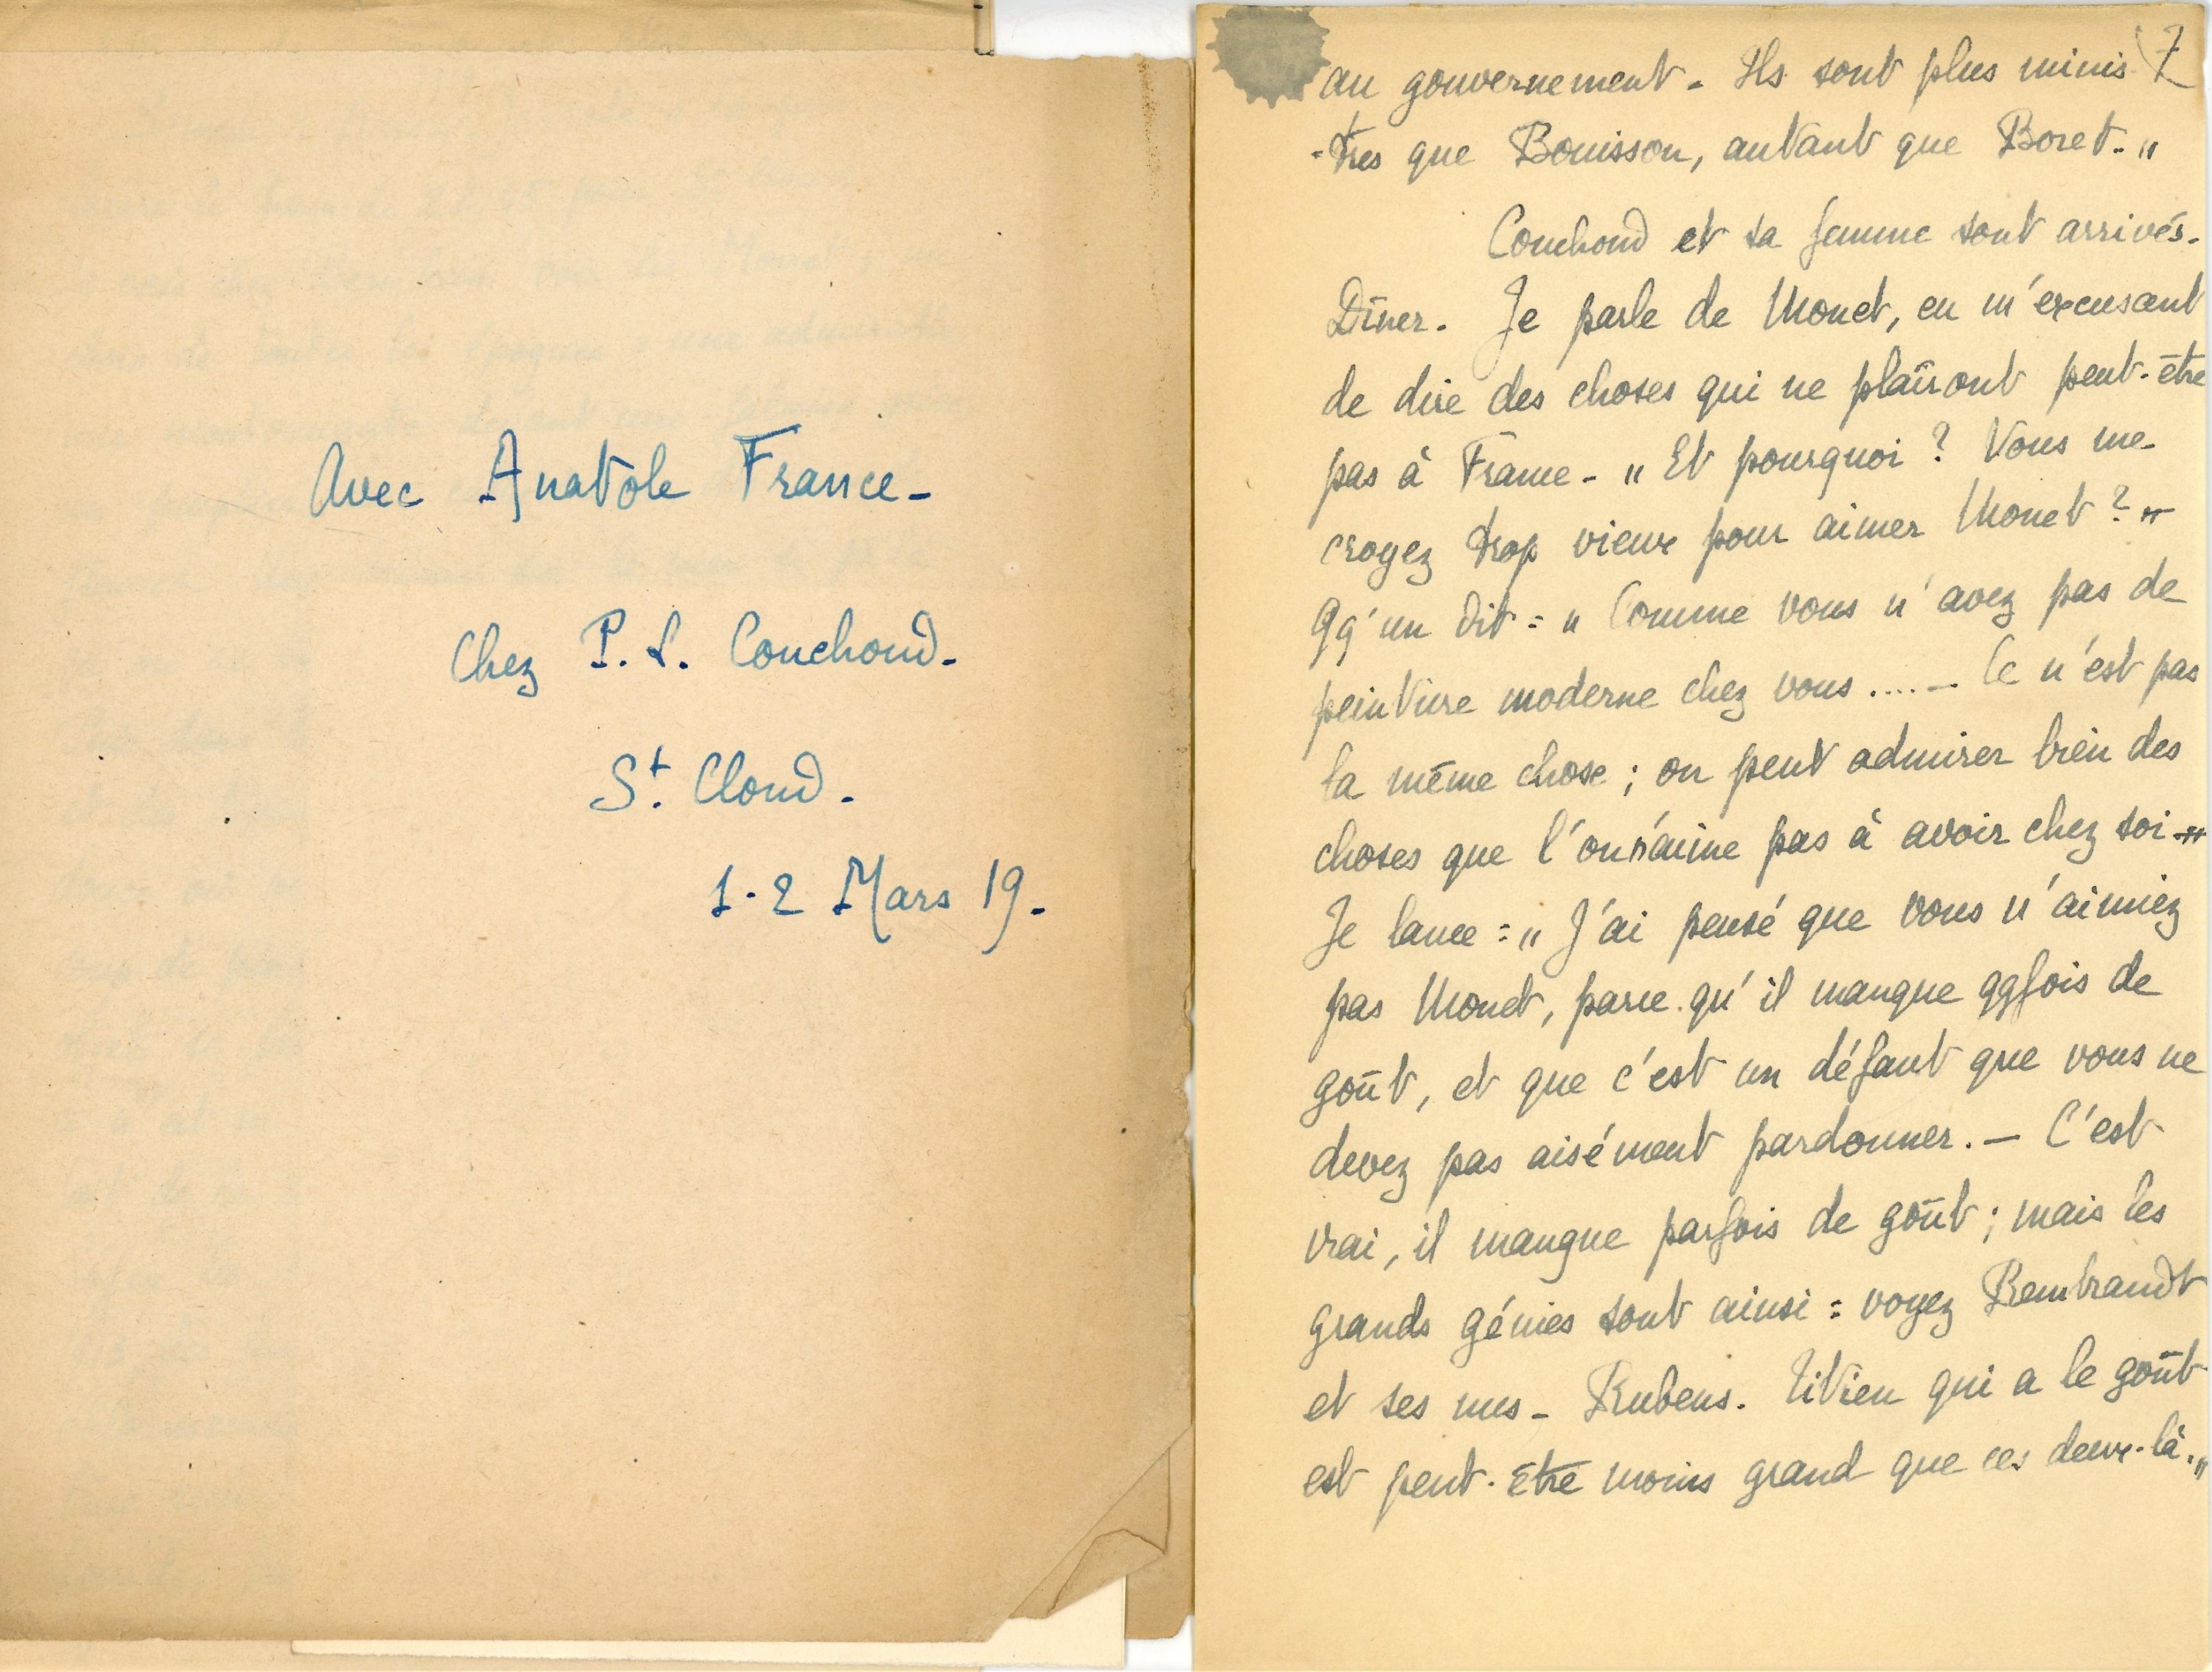 Avec Anatole France-
Chez P. L. Couchoud.
St. Cloud.
1-2 Mars 19.
7
au gouvernement - Ils sont plus minis
-tres que Bouisson, autant que Boret. "
Couchoud et sa femme sont arrivés.
Dîner. Je parle de Monet, en m'excusant
de dire des choses qui ne plairont peut-être
pas à France - " Et pourquoi ? Vous me
croyez trop vieux pour aimer Monet ? "
Qq'un dit : " Comme vous n'avez pas de
peinture moderne chez vous .... - Ce n'est pas
la même chose ; on peut admirer bien des
choses que l'on n'aime pas à avoir chez soi - "
Je lance : " J'ai pensé que vous n'aimiez
pas Monet, parce qu'il manque qqfois de
goût, et que c'est un défaut que vous ne
devez pas aisément pardonner. - C'est
vrai, il manque parfois de goût ; mais les
grands génies sont ainsi : voyez Rembrandt
et ses nus - Rubens. Titien qui a le goût
est peut-être moins grand que ces deux-là. "